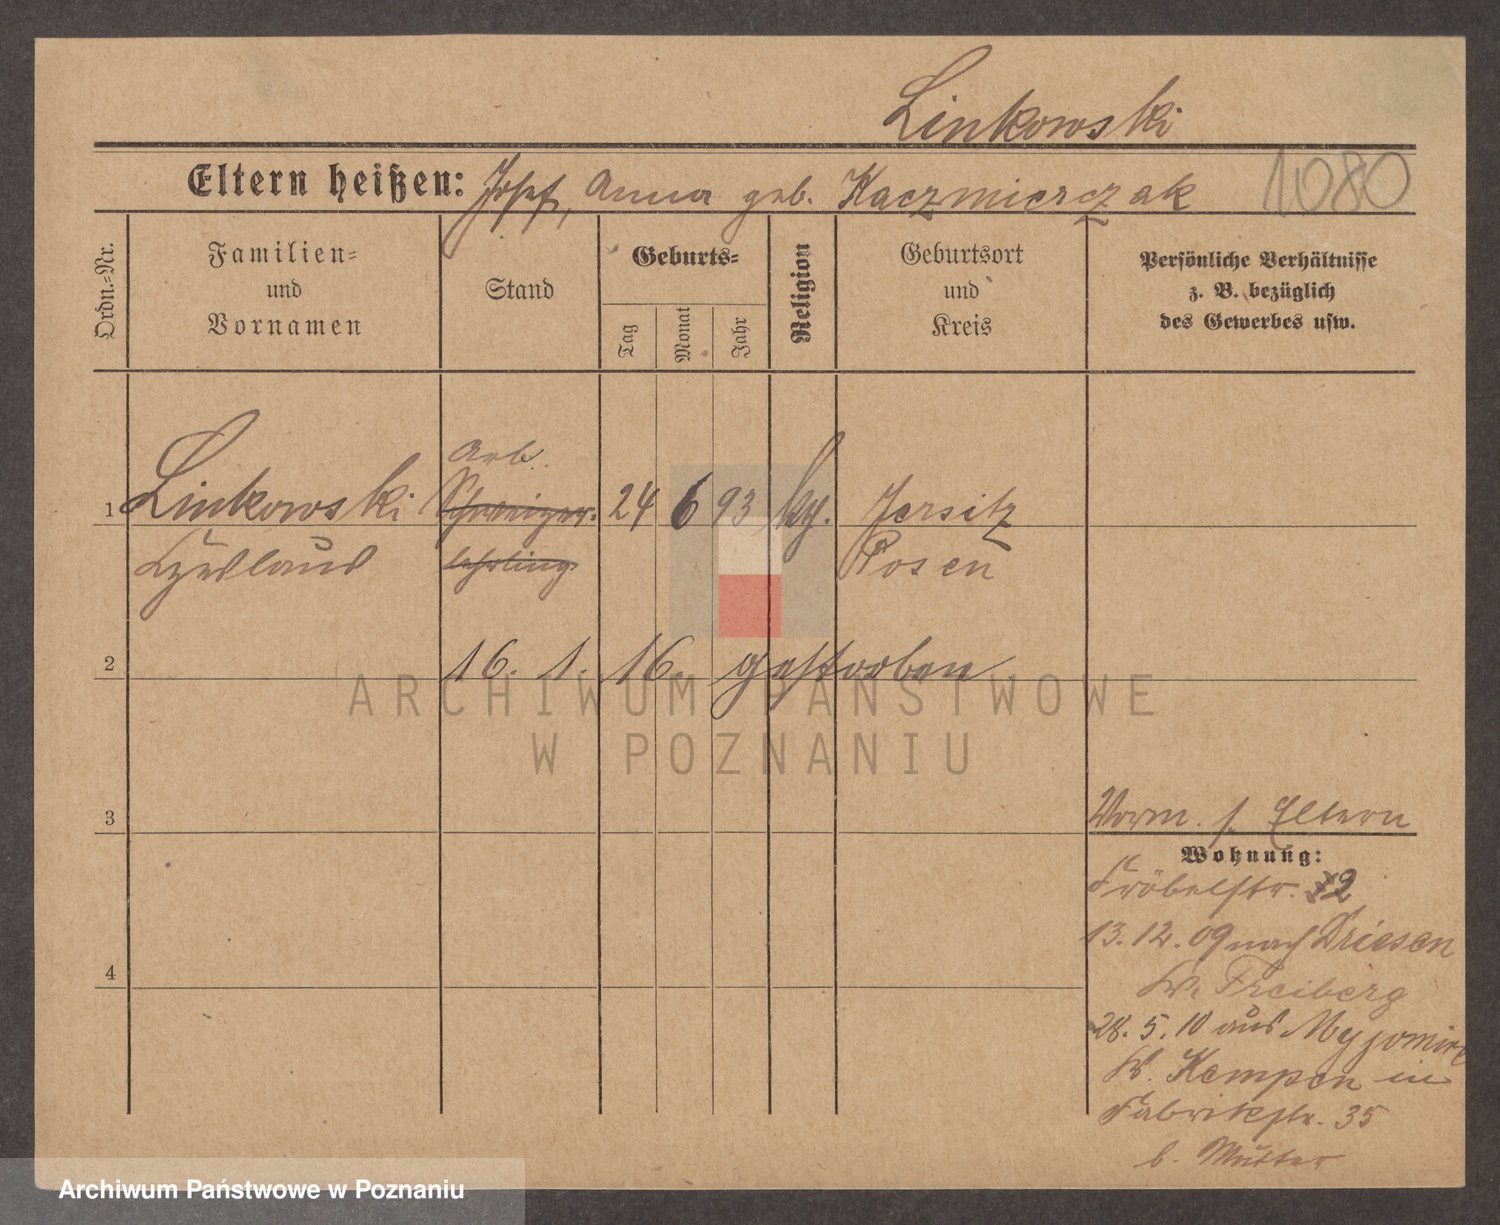 Linkowski
Eltern heißen: Josef, Anna geb. Kaczmierczak
1080
Ordn.-Nr.
Familien=
und
Vornamen
Stand
Geburts=
Tag
Monat
Jahr
Religion
Geburtsort
und
Kreis
Persönliche Verhältnisse
z. B. bezüglich
des Gewerbes usw.
Arb.
1 Linkowski 24 6 93 Jersitz
lehrling Posen
2 16. 1. 16. gestorben
3
4
Vorm. s. Eltern
Wohnung:
Fröbelstr. 2
13. 12. 09 nach Driesen
Kr. Freiberg
28. 5. 10 aus
Kr. Kempen in
Fabrikstr. 35
b. Mutter
ARCHIWUM PAŃSTWOWE
W POZNANIU
Archiwum Państwowe w Poznaniu